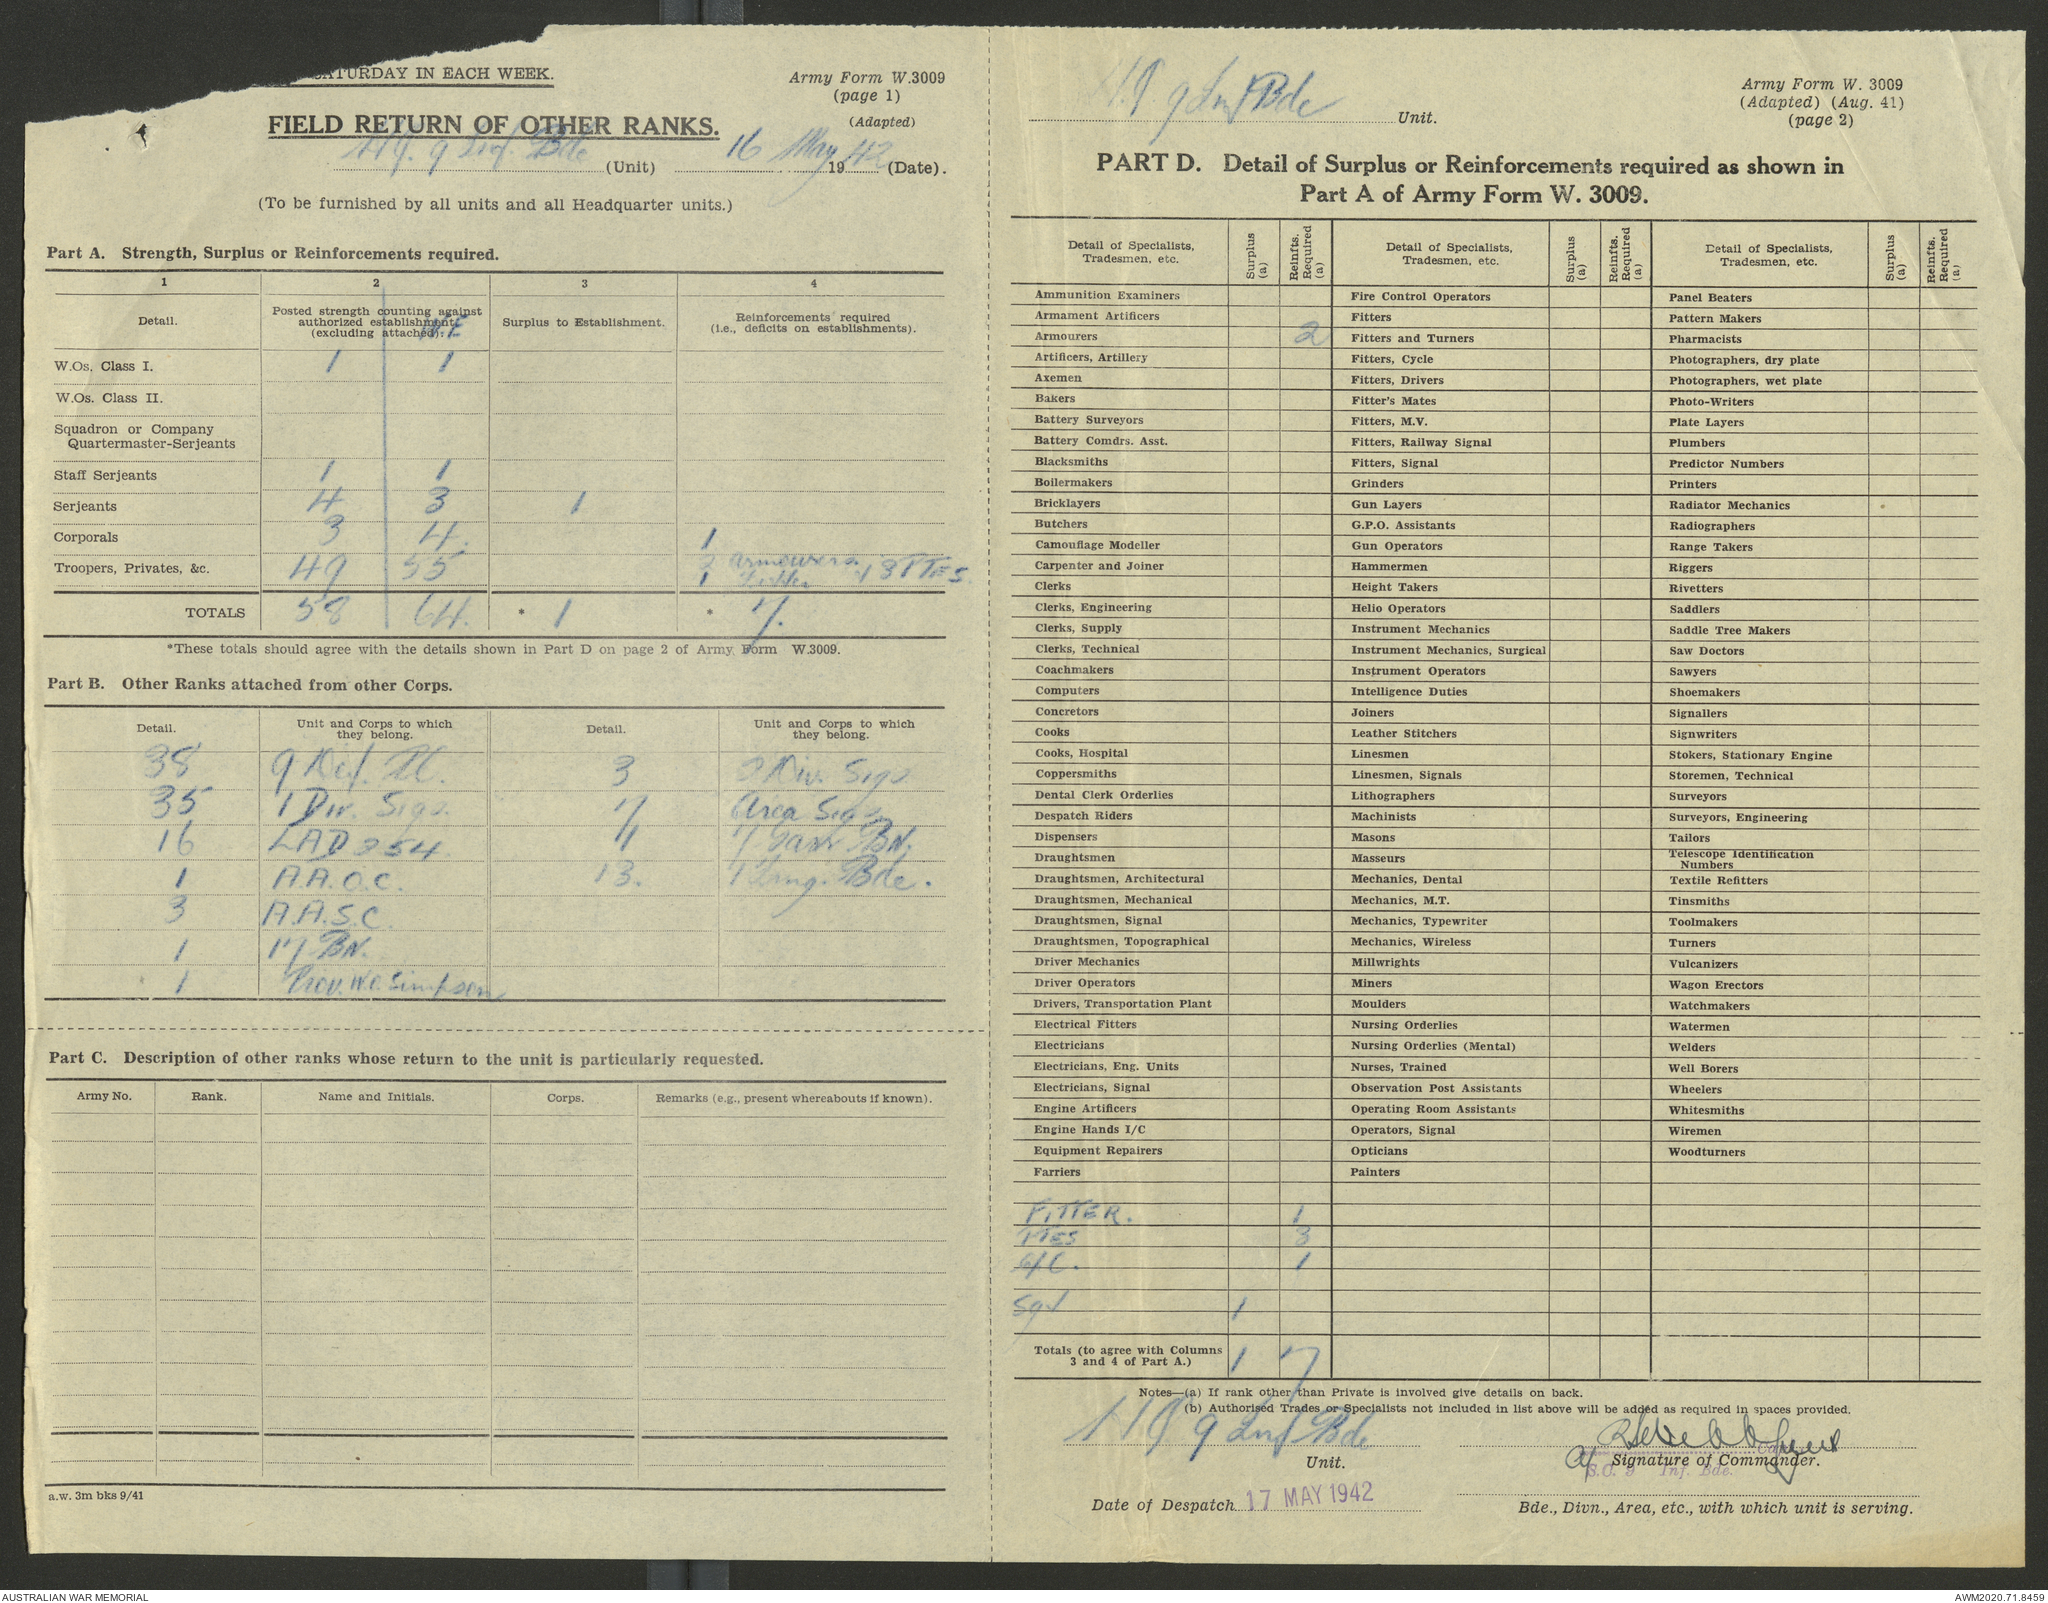 SATURDAY IN EACH WEEK.
Army Form W.3009
(page 1)
(Adapted)
FIELD RETURN OF OTHER RANKS.
HQ. 9 Inf. Bde (Unit) 16 May 1942 (Date).
(To be furnished by all units and all Headquarter units.)
Part A. Strength, Surplus or Reinforcements required.
1 2 3 4
Detail. Posted strength counting against authorized establishment (excluding attached). W.E. Surplus to Establishment. Reinforcements required (i.e., deficits on establishments).
W.Os. Class I. 1 1
W.Os. Class II.
Squadron or Company
Quartermaster-Serjeants
Staff Serjeants 1 1
Serjeants 4 3 1
Corporals 3 4. 1
Troopers, Privates, &c. 49 55 2 Armourers 1 Fitter 3 PTES.
TOTALS 58 64. * 1 * 7.
*These totals should agree with the details shown in Part D on page 2 of Army Form W.3009.
Part B. Other Ranks attached from other Corps.
Detail. Unit and Corps to which they belong. Detail. Unit and Corps to which they belong.
38 9 Def. Pl. 3 2 Div Sigs
35 1 Div. Sigs. 7 Area Sigs
16 LAD 254. 4 7 Garr BN.
1 A.A.O.C. 13. 1 Trng. Bde.
3 A.A.S.C
1 17 BN.
1 Prov. W.O. Simpson
Part C. Description of other ranks whose return to the unit is particularly requested.
Army No. Rank. Name and Initials. Corps. Remarks (e.g., present whereabouts if known).
a.w. 3m bks 9/41
HQ 9 Inf Bde Unit.
Army Form W. 3009
(Adapted) (Aug. 41)
(page 2)
PART D. Detail of Surplus or Reinforcements required as shown in
Part A of Army Form W. 3009.
Detail of Specialists, Tradesmen, etc. Surplus (a) Reinfts. Required (a) Detail of Specialists, Tradesmen, etc. Surplus (a) Reinfts. Required (a) Detail of Specialists, Tradesmen, etc. Surplus (a) Reinfts. Required (a)
Ammunition Examiners Fire Control Operators Panel Beaters
Armament Artificers Fitters Pattern Makers
Armourers 2 Fitters and Turners Pharmacists
Artificers, Artillery Fitters, Cycle Photographers, dry plate
Axemen Fitters, Drivers Photographers, wet plate
Bakers Fitter's Mates Photo-Writers
Battery Surveyors Fitters, M.V. Plate Layers
Battery Comdrs. Asst. Fitters, Railway Signal Plumbers
Blacksmiths Fitters, Signal Predictor Numbers
Boilermakers Grinders Printers
Bricklayers Gun Layers Radiator Mechanics
Butchers G.P.O. Assistants Radiographers
Camouflage Modeller Gun Operators Range Takers
Carpenter and Joiner Hammermen Riggers
Clerks Height Takers Rivetters
Clerks, Engineering Helio Operators Saddlers
Clerks, Supply Instrument Mechanics Saddle Tree Makers
Clerks, Technical Instrument Mechanics, Surgical Saw Doctors
Coachmakers Instrument Operators Sawyers
Computers Intelligence Duties Shoemakers
Concretors Joiners Signallers
Cooks Leather Stitchers Signwriters
Cooks, Hospital Linesmen Stokers, Stationary Engine
Coppersmiths Linesmen, Signals Storemen, Technical
Dental Clerk Orderlies Lithographers Surveyors
Despatch Riders Machinists Surveyors, Engineering
Dispensers Masons Tailors
Draughtsmen Masseurs Telescope Identification Numbers
Draughtsmen, Architectural Mechanics, Dental Textile Refitters
Draughtsmen, Mechanical Mechanics, M.T. Tinsmiths
Draughtsmen, Signal Mechanics, Typewriter Toolmakers
Draughtsmen, Topographical Mechanics, Wireless Turners
Driver Mechanics Millwrights Vulcanizers
Driver Operators Miners Wagon Erectors
Drivers, Transportation Plant Moulders Watchmakers
Electrical Fitters Nursing Orderlies Watermen
Electricians Nursing Orderlies (Mental) Welders
Electricians, Eng. Units Nurses, Trained Well Borers
Electricians, Signal Observation Post Assistants Wheelers
Engine Artificers Operating Room Assistants Whitesmiths
Engine Hands I/C Operators, Signal Wiremen
Equipment Repairers Opticians Woodturners
Farriers Painters
FITTER. 1
PTES 3
L/C. 1
Sgt 1
Totals (to agree with Columns 3 and 4 of Part A.) 1 7
Notes—(a) If rank other than Private is involved give details on back.
(b) Authorised Trades or Specialists not included in list above will be added as required in spaces provided.
HQ 9 Inf Bde
Unit. Signature of Commander.
S.C. 9 Inf. Bde.
Date of Despatch 17 MAY 1942
Bde., Divn., Area, etc., with which unit is serving.
AUSTRALIAN WAR MEMORIAL
AWM2020.71.8459